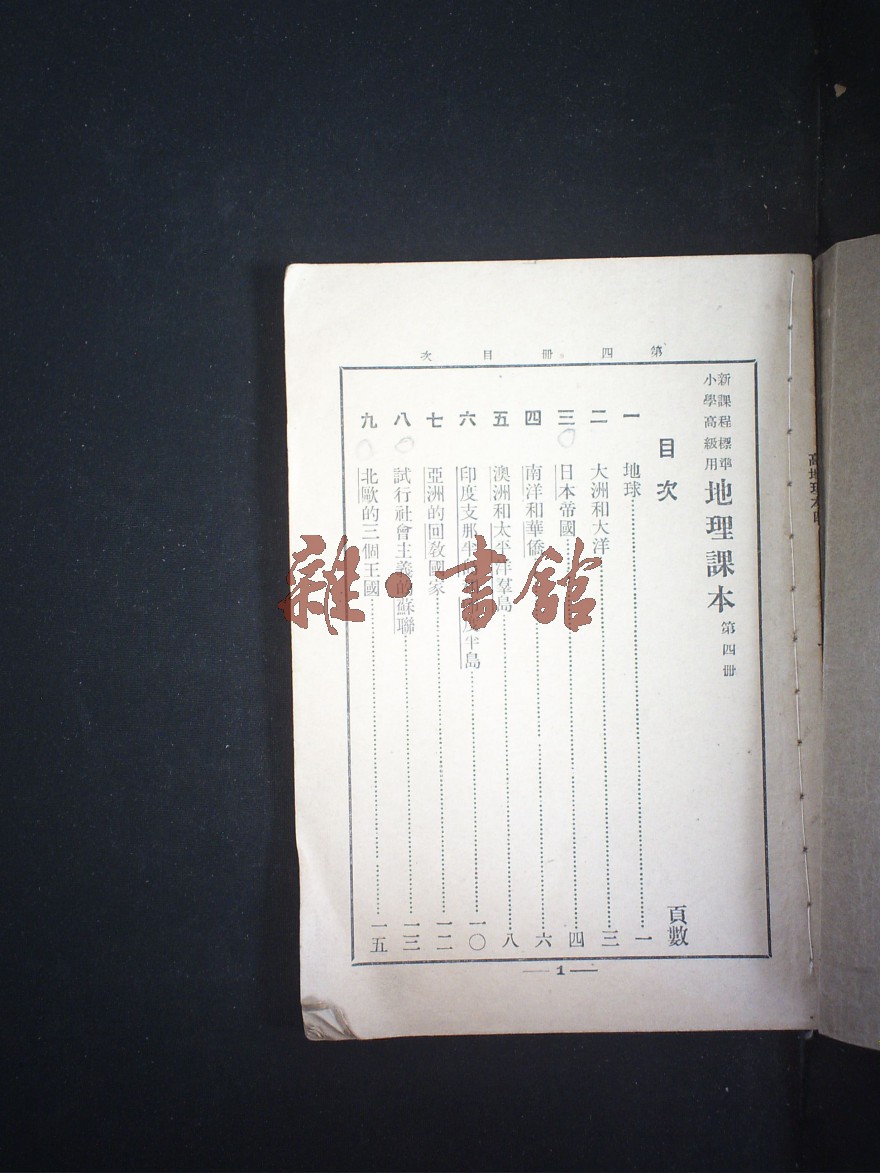 第四冊目次
新課程標準
小學高級用
地理課本 第四冊
目次 頁數
一 地球 一
二 大洲和大洋 三
三 日本帝國 四
四 南洋和華僑 六
五 澳洲和太平洋羣島 八
六 印度支那半 度半島 一〇
七 亞洲的回教國家 一二
八 試行社會主義的蘇聯 一三
九 北歐的三個王國 一五
1
雜·書館